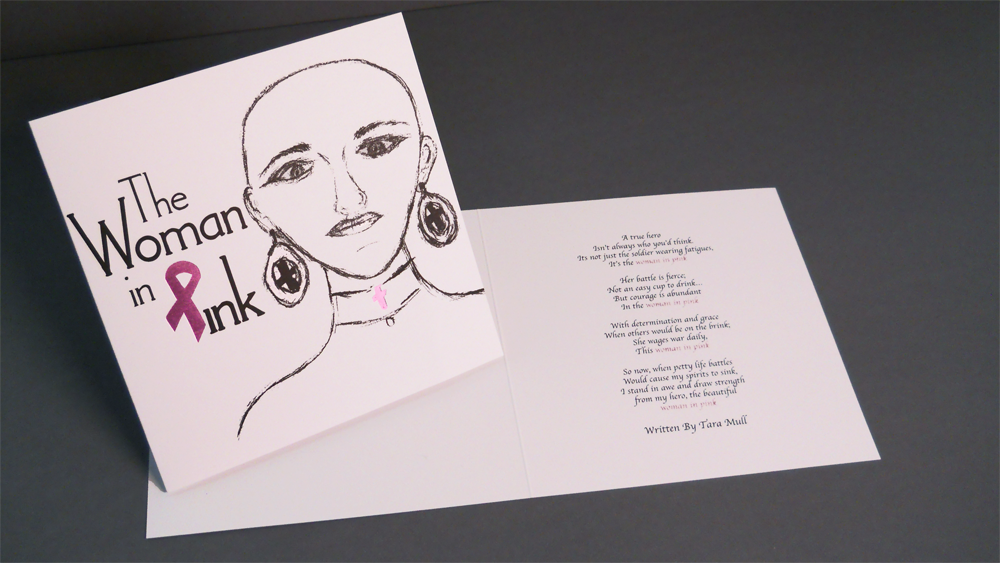 The
Woman
in Pink
A true hero
Isn't always who you'd think.
Its not just the soldier wearing fatigues,
It's the woman in pink
Her battle is fierce;
Not an easy cup to drink...
But courage is abundant
In the woman in pink
With determination and grace
When others would be on the brink;
She wages war daily,
This woman in pink
So now, when petty life battles
Would cause my spirits to sink,
I stand in awe and draw strength
from my hero, the beautiful
woman in pink
Written By Tara Mull